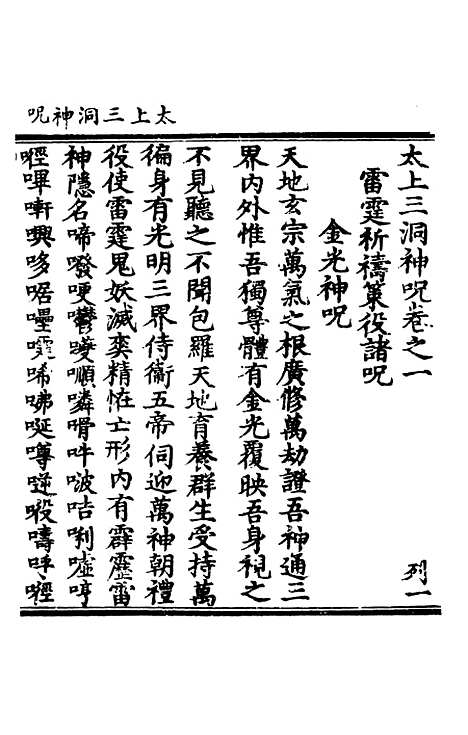 太上三洞神呪
太上三洞神呪卷之一
列一
雷霆祈禱策役諸呪
金光神呪
天地玄宗萬氣之根廣修萬劫證吾神通三
界內外惟吾獨尊體有金光覆映吾身視之
不見聽之不聞包羅天地育養群生受持萬
徧身有光明三界侍衞五帝伺迎萬神朝禮
役使雷霆鬼妖滅喪精怪亡形內有霹靂雷
神隱名啼㗶哽嚘順噒㗇吽啵咭唎嘘哼
嚊㖧嘢哆啹唏咈唌噂㖷嚋呼